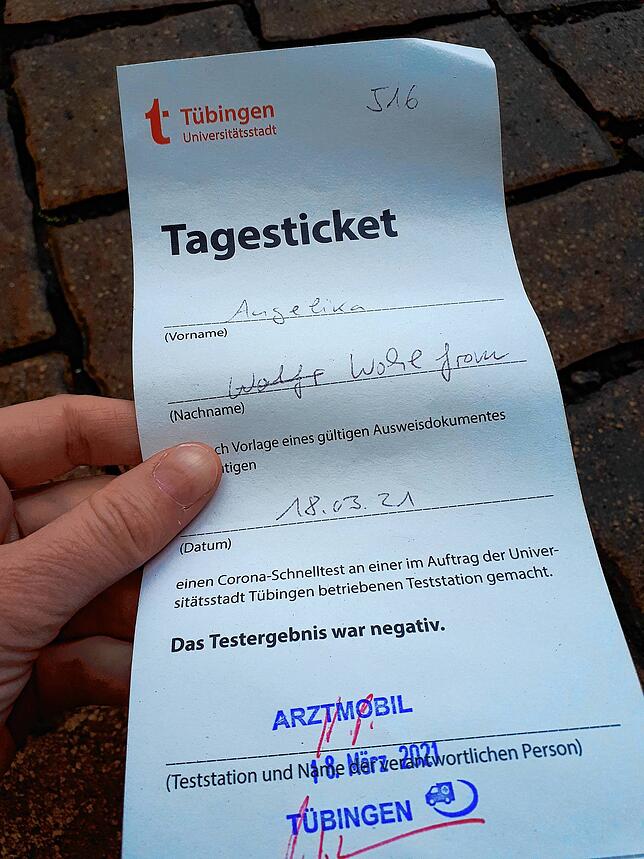 Tübingen
Universitätsstadt
516
Tagesticket
Angelika
(Vorname)
(Nachname)
ch Vorlage eines gültigen Ausweisdokumentes
tigen
18.03.21
(Datum)
einen Corona-Schnelltest an einer im Auftrag der Univer-
sitätsstadt Tübingen betriebenen Teststation gemacht.
Das Testergebnis war negativ.
ARZTMOBIL
18. März 2021
(Teststation und Name der verantwortlichen Person)
TÜBINGEN